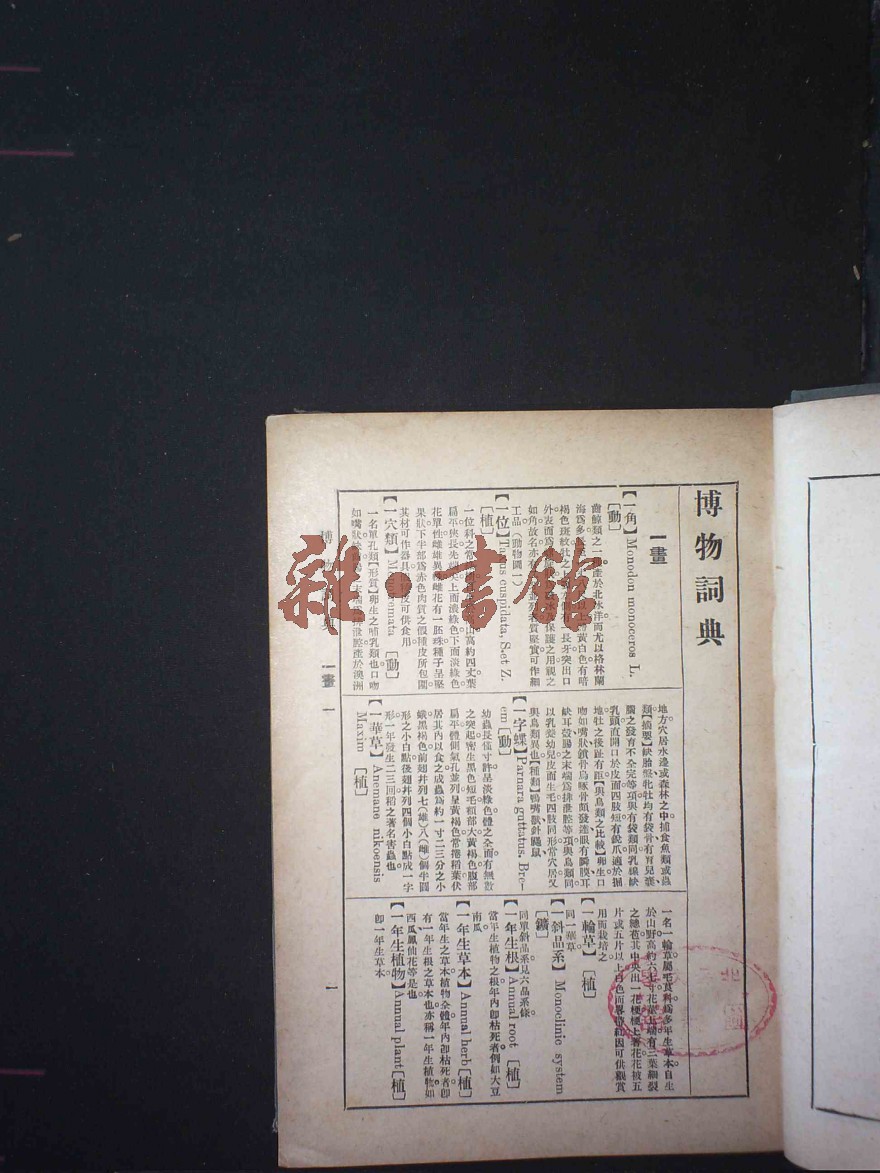 博物詞典
一畫
【一角】Monodon monoceros L.
[動]
齒鯨類之一產於北冰洋而尤以格林蘭
如角故名亦有
工品(動物圖一)
【一位】Taxus cuspidata, S. et Z.
[植]
扁平狹長先端尖上面濃綠色下面淡綠色
花單性雌雄異株雌花有一胚珠種子呈堅
果狀下半部爲赤色肉質之假種皮所包圍
其材可作器具種皮可供食用
【一穴類】[動]
一名單孔類【形質】卵生之哺乳類也口吻
地方穴居水邊或森林之中捕食魚類或蟲
類【摘要】缺胎盤牝牡均有袋骨有育兒囊
腦之發育不全完等項與有袋類同乳線缺
乳頭直開口於皮面四肢短有銳爪適於掘
地牡之後趾有距【與鳥類之比較】卵生口
吻如嘴狀鎖骨烏喙骨頗發達眼有瞬膜耳
缺耳殼腸之末端爲排泄腔等項與鳥類同
以乳養幼兒皮面生毛四肢同形常穴居又
與鳥類異也【種類】鴨嘴獸針鼴鼠
【一字蝶】Parnara guttatus, Bre-
em [動]
幼蟲長僅寸許呈淡綠色體之全面有無數
之突起密生黑色短毛頭部大黃褐色腹部
扁平體側氣孔並列呈黃褐色常捲稻葉伏
居其內以食之成蟲爲約一寸二三分之小
蛾黑褐色前翅并列七(雄)八(雌)個半圓
形之小白點後翅并列四個小白點成一字
形一年發生二三回稻之著名害蟲也
【一華草】Anemane nikoensis
Maxim [植]
一名一輪草屬毛茛科爲多年生草本自生
於山野高約六七寸花莖上端有三葉細裂
之總苞其中央出一花梗梗上著花花被五
片或五片以上白色而畧帶紅因可供觀賞
用而栽培之
【一輪草】[植]
同一華草
【一斜品系】Monoclinic system
[鑛]
同單斜晶系見六晶系條
【一年生根】Annual root [植]
當年生植物之根年內卽枯死者例如大豆
南瓜
【一年生草本】Annual herb [植]
當年生之草本植物全體年內卽枯死者卽
有一年生根之草本也亦稱一年生植物如
西瓜鳳仙花等是也
【一年生植物】Annual plant [植]
卽一年生草本
一畫 一
一
雜·書館